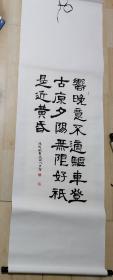 嚮晚意不適驅車登
古原夕陽無限好祇
是近黃昏